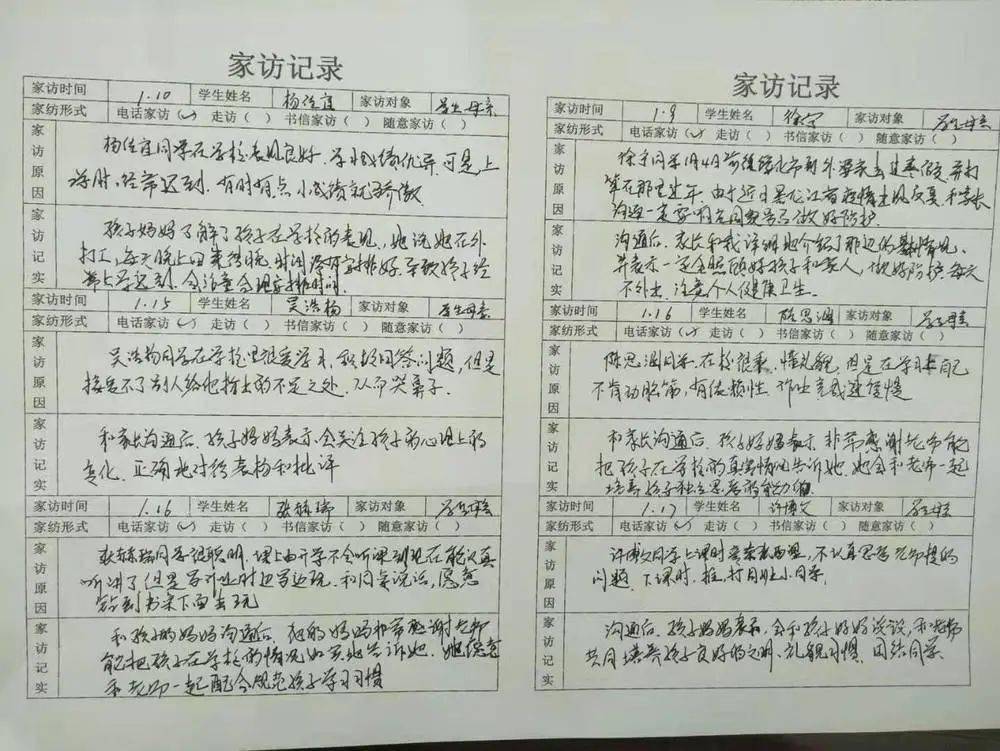 家访记录
家访时间 1.10 学生姓名 杨佳宜 家访对象 学生母亲
家纺形式 电话家访（✓） 走访（ ） 书信家访（ ） 随意家访（ ）
家访原因
杨佳宜同学在学校表现良好，学习成绩优异，可是上
学时，经常迟到，有时有点小成绩就骄傲
家访记实
孩子妈妈了解了孩子在学校的表现，她说她在外
打工，每天晚上回来得晚，时间没有安排好，导致孩子经
常上学迟到，今后会合理安排时间。
家访时间 1.15 学生姓名 吴浩杨 家访对象 学生母亲
家纺形式 电话家访（✓） 走访（ ） 书信家访（ ） 随意家访（ ）
家访原因
吴浩杨同学在学校里很爱学习，积极回答问题，但是
接受不了别人给他指出的不足之处，哭鼻子。
家访记实
和家长沟通后，孩子妈妈表示，会关注孩子的心理上的
变化，正确地对待表扬和批评
家访时间 1.16 学生姓名 家访对象 学生母亲
家纺形式 电话家访（✓） 走访（ ） 书信家访（ ） 随意家访（ ）
家访原因
同学很聪明，课上由开学不会听课到现在能认真
听讲了，但是写作业时边写边玩，和同桌说话，愿意
钻到书桌下面去玩
家访记实
和孩子的妈妈沟通后，孩的妈妈非常感谢老师
能把孩子在学校的情况如实地告诉她，她愿意
和老师一起配合规范孩子学习习惯
家访记录
家访时间 1.9 学生姓名 家访对象 学生母亲
家纺形式 电话家访（✓） 走访（ ） 书信家访（ ） 随意家访（ ）
家访原因
同学1月4日前后绥化市到外婆家去过寒假，并打
算在那里过年，由于近日黑龙江省疫情出现反复，和家长
沟通一定要做好防护
家访记实
沟通后，家长和我详细地介绍了那边的情况，
并表示一定会照顾好孩子和家人，做好防护，每天
不外出，注意个人健康卫生。
家访时间 1.16 学生姓名 陈思涵 家访对象 学生母亲
家纺形式 电话家访（✓） 走访（ ） 书信家访（ ） 随意家访（ ）
家访原因
陈思涵同学，在校很乖，懂礼貌，但是在学习上自己
不肯动脑筋，有依赖性，作业完成速度慢
家访记实
和家长沟通后，孩子妈妈表示，非常感谢老师能
把孩子在学校的真实情况告诉她，她会和老师一起
培养孩子独立思考的能力。
家访时间 1.17 学生姓名 许博文 家访对象 学生母亲
家纺形式 电话家访（✓） 走访（ ） 书信家访（ ） 随意家访（ ）
家访原因
许博文同学上课时，不认真思考老师提的
问题，下课时，推，打小同学。
家访记实
沟通后，孩子妈妈表示，会和孩子好好谈谈，和老师
共同培养孩子良好的文明、礼貌习惯，团结同学